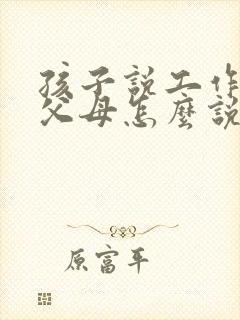 孩子說工作
父母怎麼說
原富平